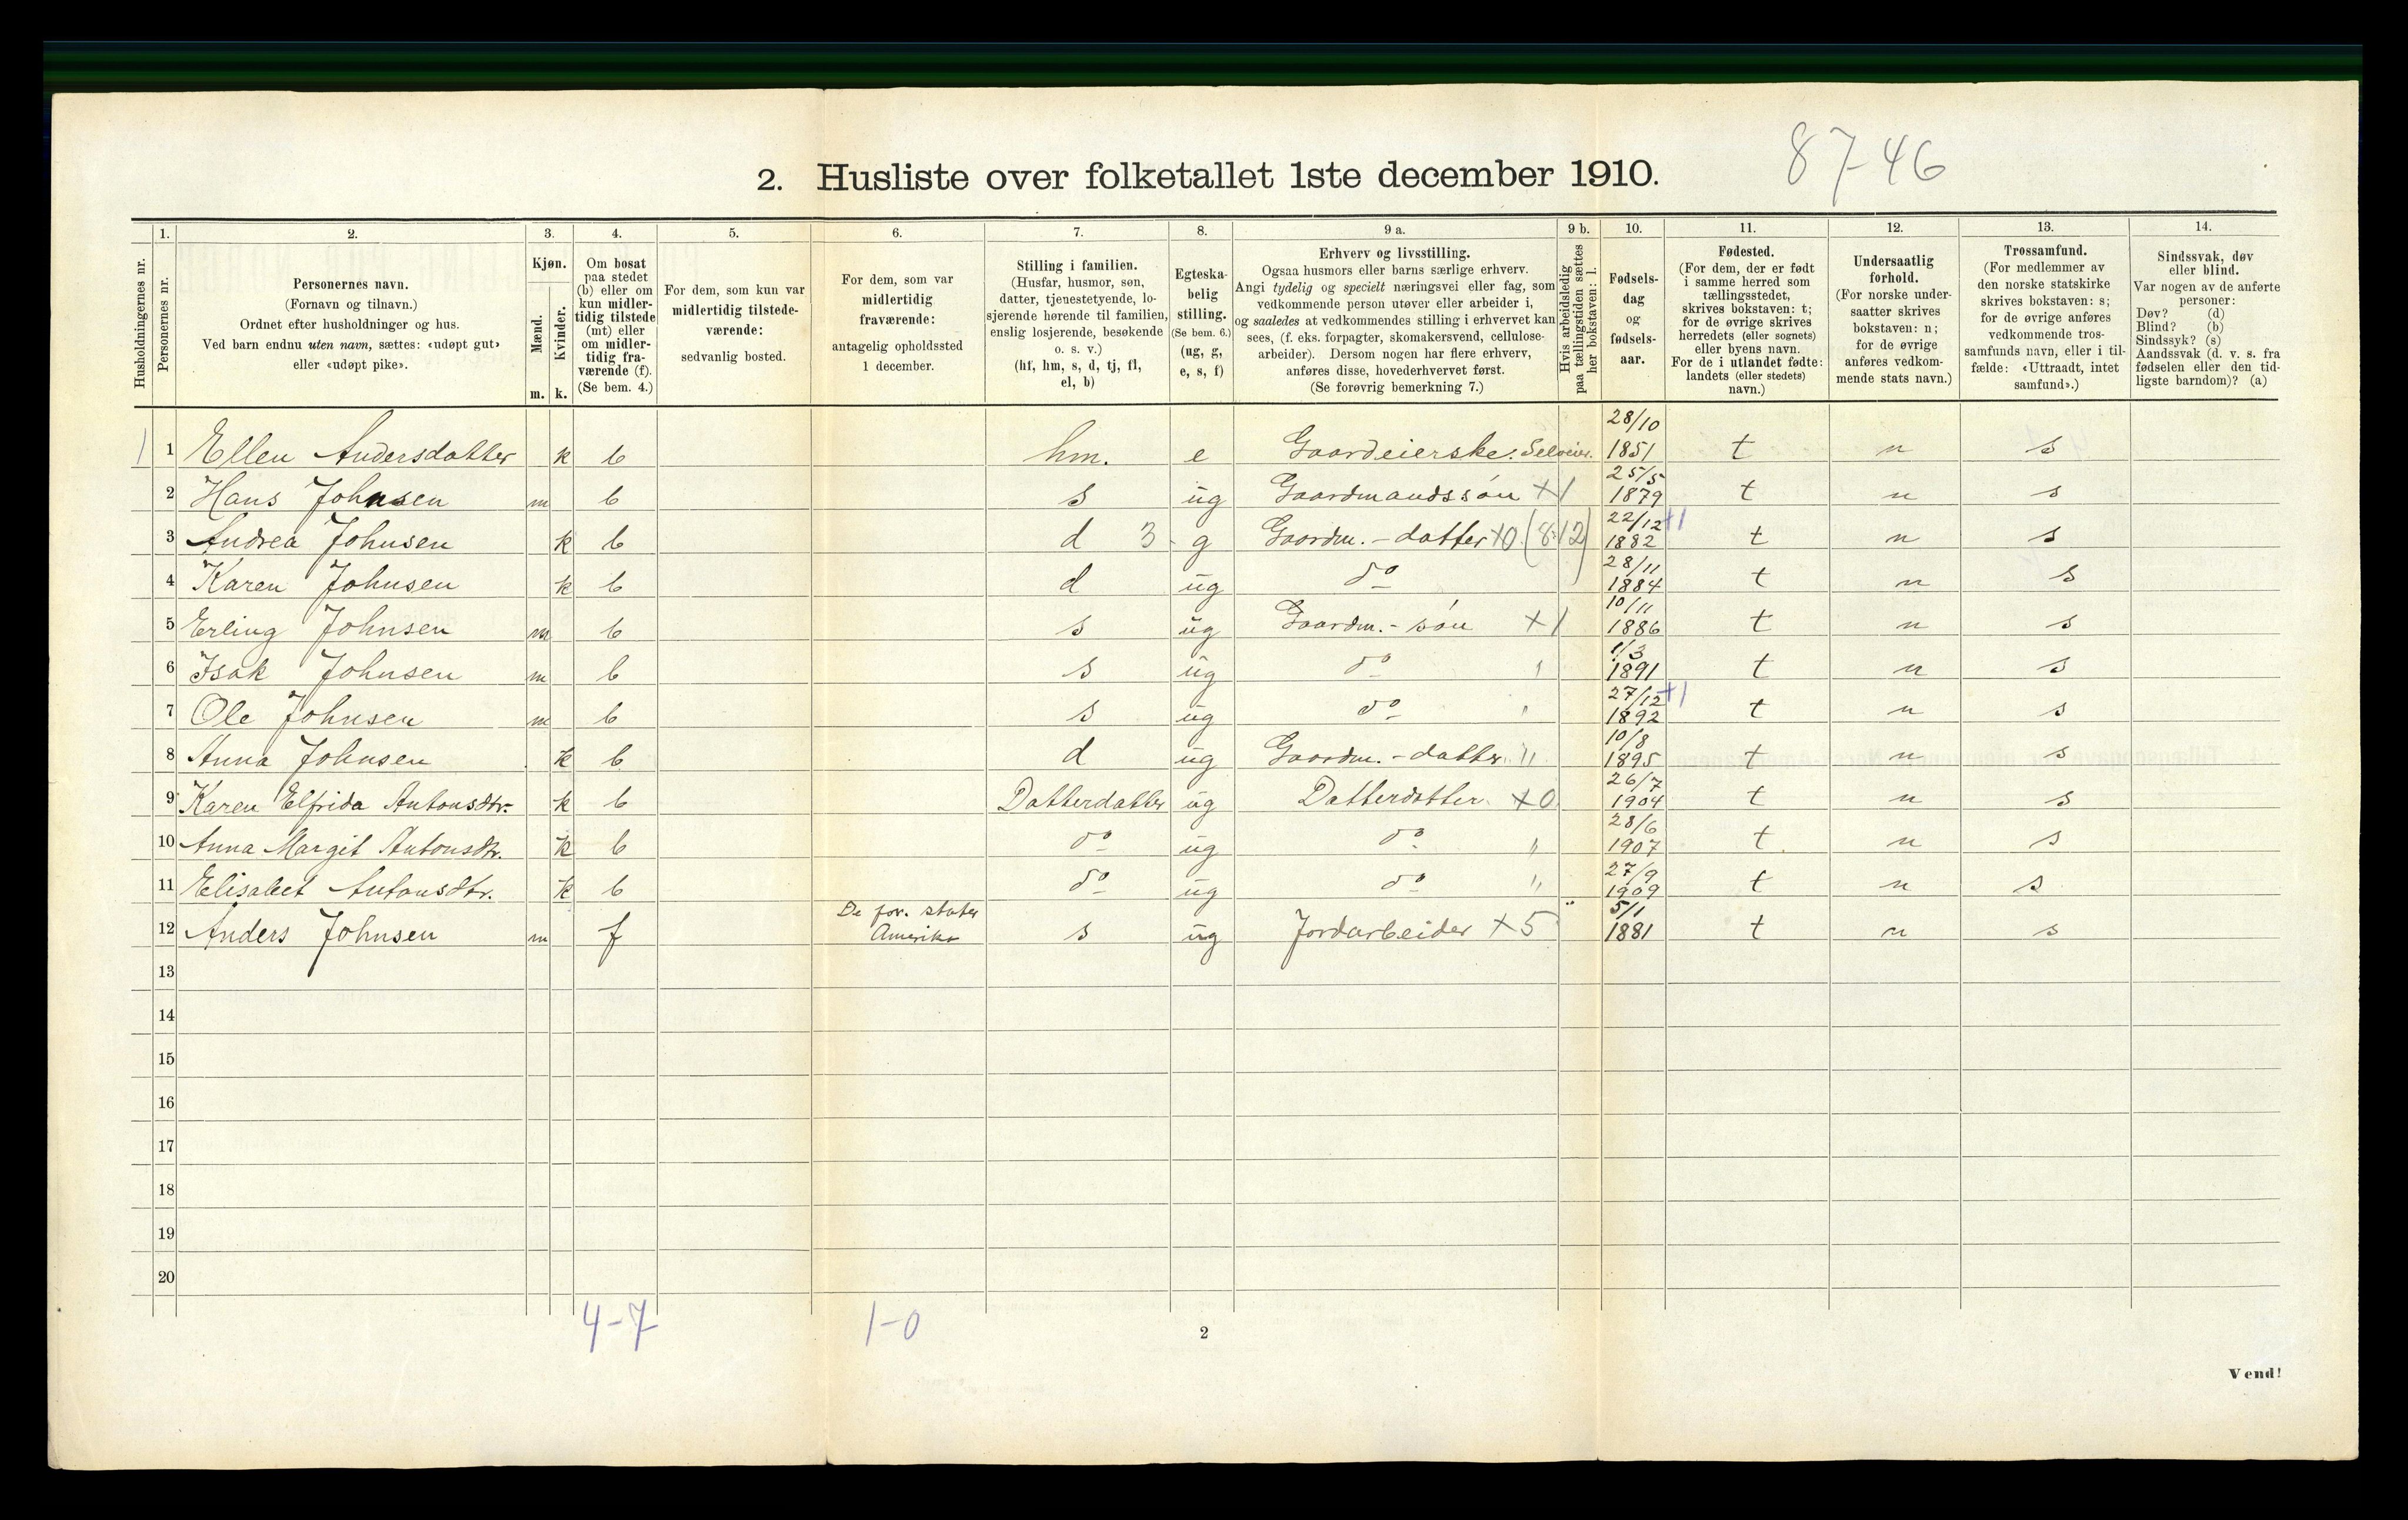 87-46
2. Husliste over folketallet 1ste december 1910.
1. 2. 3. 4. 5. 6. 7. 8. 9 a. 9 b. 10. 11. 12. 13. 14.
Husholdningernes nr.
Personernes nr.
Personernes navn.
(Fornavn og tilnavn.)
Ordnet efter husholdninger og hus.
Ved barn endnu uten navn, sættes: «udøpt gut»
eller «udøpt pike».
Kjøn.
Mænd.
Kvinder.
m. k.
Om bosat
paa stedet
(b) eller om
kun midler-
tidig tilstede
(mt) eller
om midler-
tidig fra-
værende (f).
(Se bem. 4.)
For dem, som kun var
midlertidig tilstede-
værende:
sedvanlig bosted.
For dem, som var
midlertidig
fraværende:
antagelig opholdssted
1 december.
Stilling i familien.
(Husfar, husmor, søn,
datter, tjenestetyende, lo-
sjerende hørende til familien,
enslig losjerende, besøkende
o. s. v.)
(hf, hm, s, d, tj, fl,
el, b)
Egteska-
belig
stilling.
(Se bem. 6.)
(ug, g,
e, s, f)
Erhverv og livsstilling.
Ogsaa husmors eller barns særlige erhverv.
Angi tydelig og specielt næringsvei eller fag, som
vedkommende person utøver eller arbeider i,
og saaledes at vedkommendes stilling i erhvervet kan
sees, (f. eks. forpagter, skomakersvend, cellulose-
arbeider). Dersom nogen har flere erhverv,
anføres disse, hovederhvervet først.
(Se forøvrig bemerkning 7.)
Hvis arbeidsledig
paa tællingstiden sættes
her bokstaven: l.
Fødsels-
dag
og
fødsels-
aar.
Fødested.
(For dem, der er født
i samme herred som
tællingsstedet,
skrives bokstaven: t;
for de øvrige skrives
herredets (eller sognets)
eller byens navn.
For de i utlandet fødte:
landets (eller stedets)
navn.)
Undersaatlig
forhold.
(For norske under-
saatter skrives
bokstaven: n;
for de øvrige
anføres vedkom-
mende stats navn.)
Trossamfund.
(For medlemmer av
den norske statskirke
skrives bokstaven: s;
for de øvrige anføres
vedkommende tros-
samfunds navn, eller i til-
fælde: «Uttraadt, intet
samfund».)
Sindssvak, døv
eller blind.
Var nogen av de anførte
personer:
Døv? (d)
Blind? (b)
Sindssyk? (s)
Aandssvak (d. v. s. fra
fødselen eller den tid-
ligste barndom)? (a)
1 1 Ellen Andersdatter k b hm. e Gaardeierske. Selveier. 28/10 1851 t n s
2 Hans Johnsen m b s ug Gaardmandssøn +1 25/5 1879 t n s
3 Andrea Johnsen k b d 3 g Gaardm.-datter +0 (8.12) 22/12 +1 1882 t n s
4 Karen Johnsen k b d ug do 28/11 1884 t n s
5 Erling Johnsen m b s ug Gaardm.-søn +1 10/11 1886 t n s
6 Isak Johnsen m b s ug do " 1/3 1891 t n s
7 Ole Johnsen m b s ug do " 27/12 +1 1892 t n s
8 Anna Johnsen k b d ug Gaardm.-datter " 10/8 1895 t n s
9 Karen Elfrida Antonsdtr. k b Datterdatter ug Datterdatter +0 26/7 1904 t n s
10 Anna Margit Antonsdtr. k b do ug do " 28/6 1907 t n s
11 Elisabet Antonsdtr. k b do ug do " 27/9 1909 t n s
12 Anders Johnsen m f De for. stater Amerika s ug Jordarbeider +5 " 5/1 1881 t n s
13
14
15
16
17
18
19
20
4-7 1-0
2
Vend!